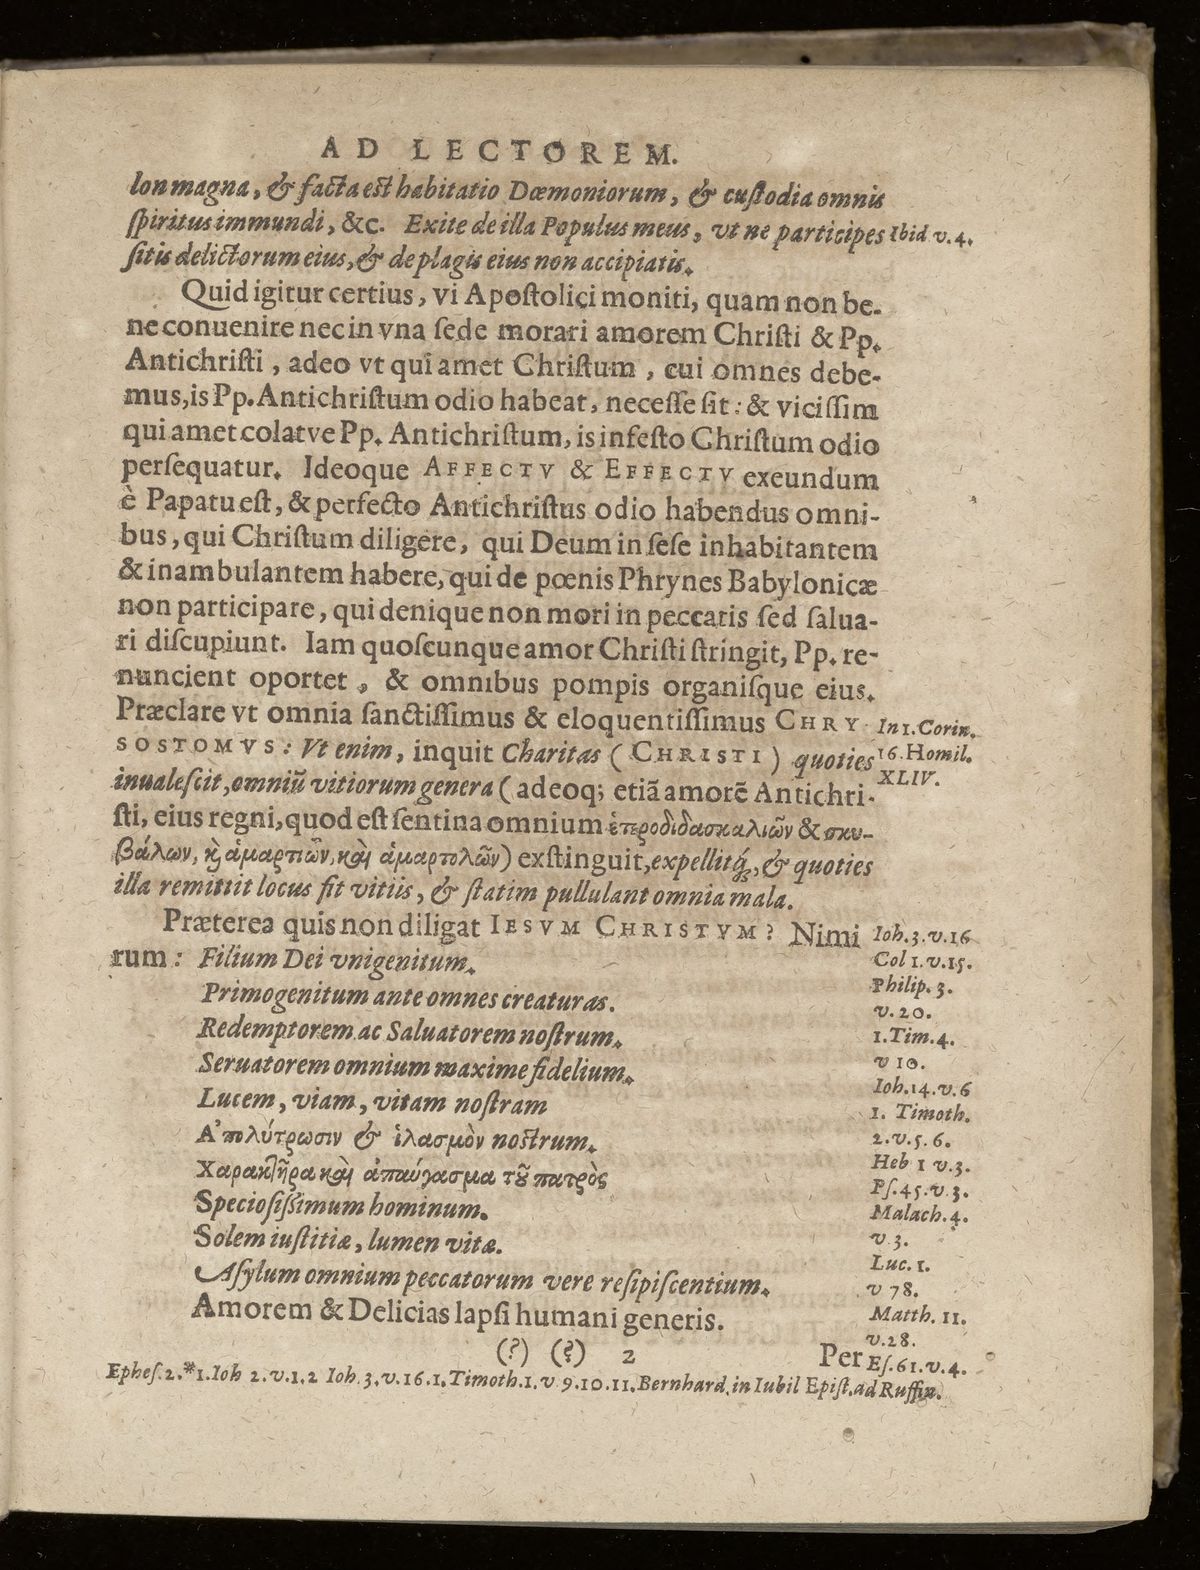 AD LECTOREM.
lon magna, & facta est habitatio Dæmoniorum, & custodia omnis
spiritus immundi, &c. Exite de illa Populus meus, vt ne participes Ibid. v. 4.
sitis delictorum eius, & de plagis eius non accipiatis.
Quid igitur certius, vi Apostolici moniti, quam non be-
ne conuenire nec in vna sede morari amorem Christi & Pp.
Antichristi, adeo vt qui amet Christum, cui omnes debe-
mus, is Pp. Antichristum odio habeat, necesse sit: & vicissim
qui amet colatve Pp. Antichristum, is infesto Christum odio
persequatur. Ideoque AFFECTV & EFFECTV exeundum
è Papatu est, & perfecto Antichristus odio habendus omni-
bus, qui Christum diligere, qui Deum in sese inhabitantem
& inambulantem habere, qui de pœnis Phrynes Babylonicæ
non participare, qui denique non mori in peccatis sed salua-
ri discupiunt. Iam quoscunque amor Christi stringit, Pp. re-
nuncient oportet, & omnibus pompis organisque eius.
Præclare vt omnia sanctissimus & eloquentissimus CHRY- In 1. Corin.
SOSTOMVS: Vt enim, inquit Charitas (CHRISTI) quoties 16. Homil.
XLIV.
inualescit, omniũ vitiorum genera (adeoq; etiã amorẽ Antichri-
sti, eius regni, quod est sentina omnium ἑτεροδιδασκαλιῶν & σκυ-
βάλων, καὶ ἁμαρτιῶν, καὶ ἁμαρτολῶν) exstinguit, expellitq́;, & quoties
illa remittit locus fit vitiis, & statim pullulant omnia mala.
Præterea quis non diligat IESVM CHRISTVM? Nimi Ioh. 3. v. 16
rum: Filium Dei vnigenitum. Col 1. v. 15.
Primogenitum ante omnes creaturas. Philip. 3.
v. 20.
Redemptorem ac Saluatorem nostrum. 1. Tim. 4.
Seruatorem omnium maxime fidelium. v 10.
Ioh. 14. v. 6
Lucem, viam, vitam nostram 1. Timoth.
Ἀπολύτρωσιν & ἱλασμὸν nostrum. 2. v. 5. 6.
Χαρακτῆρα καὶ ἀπαύγασμα τοῦ πατρὸς Heb 1 v. 3.
Ps. 45. v. 3.
Speciosissimum hominum. Malach. 4.
Solem iustitiæ, lumen vitæ. v 3.
Luc. 1.
Asylum omnium peccatorum vere resipiscentium. v 78.
Amorem & Delicias lapsi humani generis. Matth. 11.
v. 28.
(?) (?) 2 Per Es. 61. v. 4.
Ephes. 2. * 1. Ioh 2. v. 1. 2 Ioh. 3. v. 16. 1. Timoth. 1. v 9. 10. 11. Bernhard. in Iubil Epist. ad Ruffin.